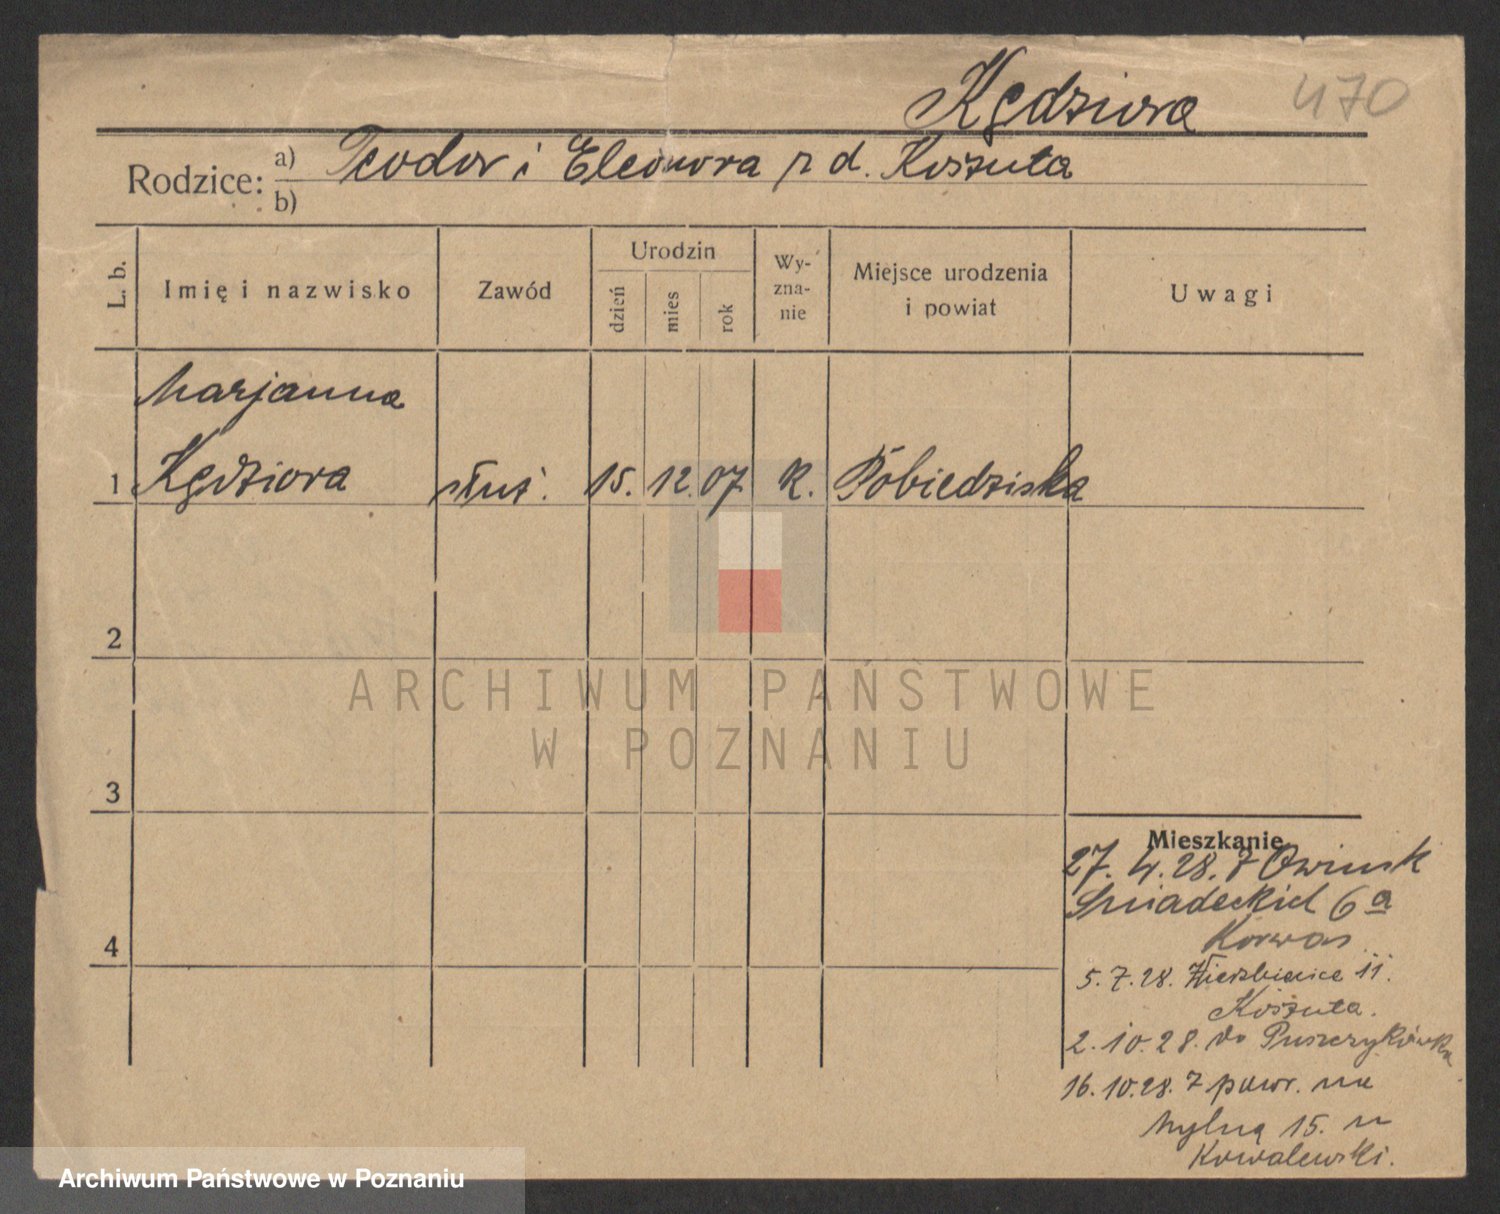 Kędziora 470
Rodzice: a) Teodor i Eleonora z d. Koszuta
b)
L. b. Imię i nazwisko Zawód Urodzin dzień mies rok Wy-zna-nie Miejsce urodzenia i powiat Uwagi
Marjanna
1 Kędziora służ. 15. 12. 07 k. Pobiedziska
2
ARCHIWUM PAŃSTWOWE
W POZNANIU
3
Mieszkanie
27. 4. 28. z Owinsk
Śniadeckich 6a
4
Korwas
5. 7. 28. Wierzbięcice 11.
Koszuta.
2. 10. 28. do Puszczykówka
16. 10. 28. z powr. na
Mylną 15. u
Kowalewski.
Archiwum Państwowe w Poznaniu